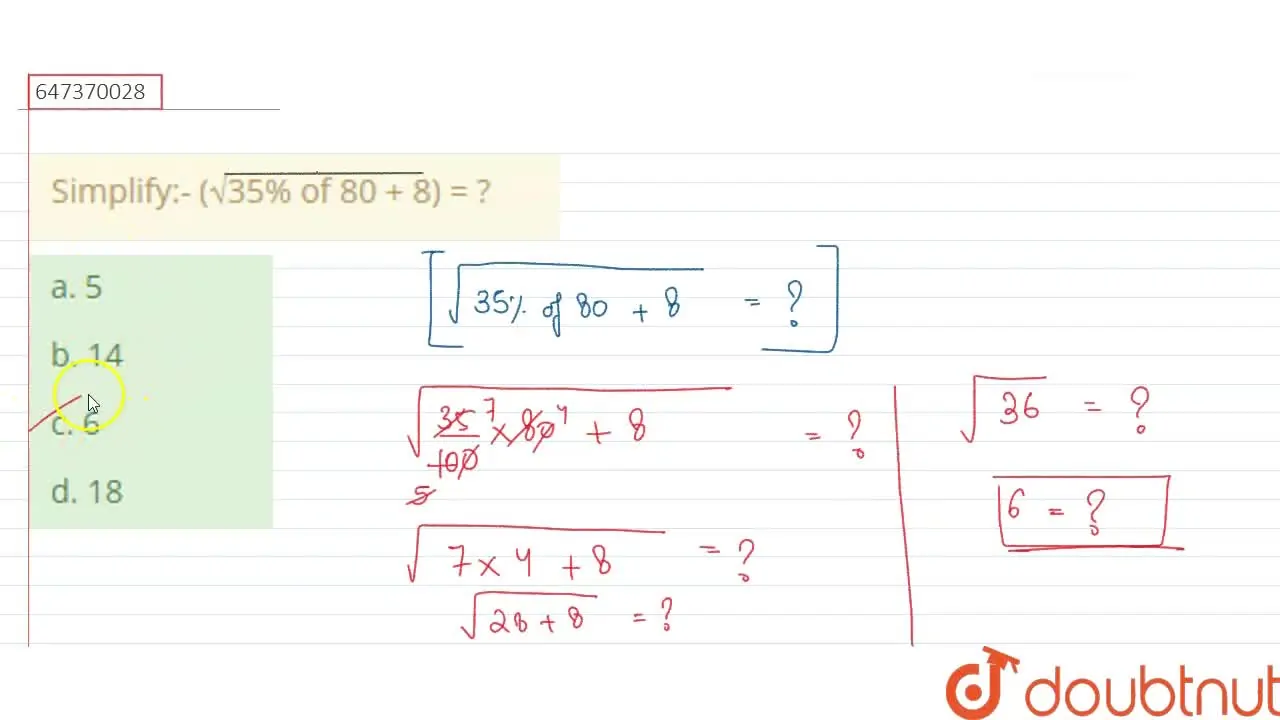 647370028
Simplify:- (√35% of 80 + 8) = ?
a. 5
b. 14
c. 6
d. 18
[√35% of 80 + 8 = ?]
√35/100 7 × 80 4 + 8 = ?
5
√7 × 4 + 8 = ?
√28 + 8 = ?
√36 = ?
6 = ?
doubtnut